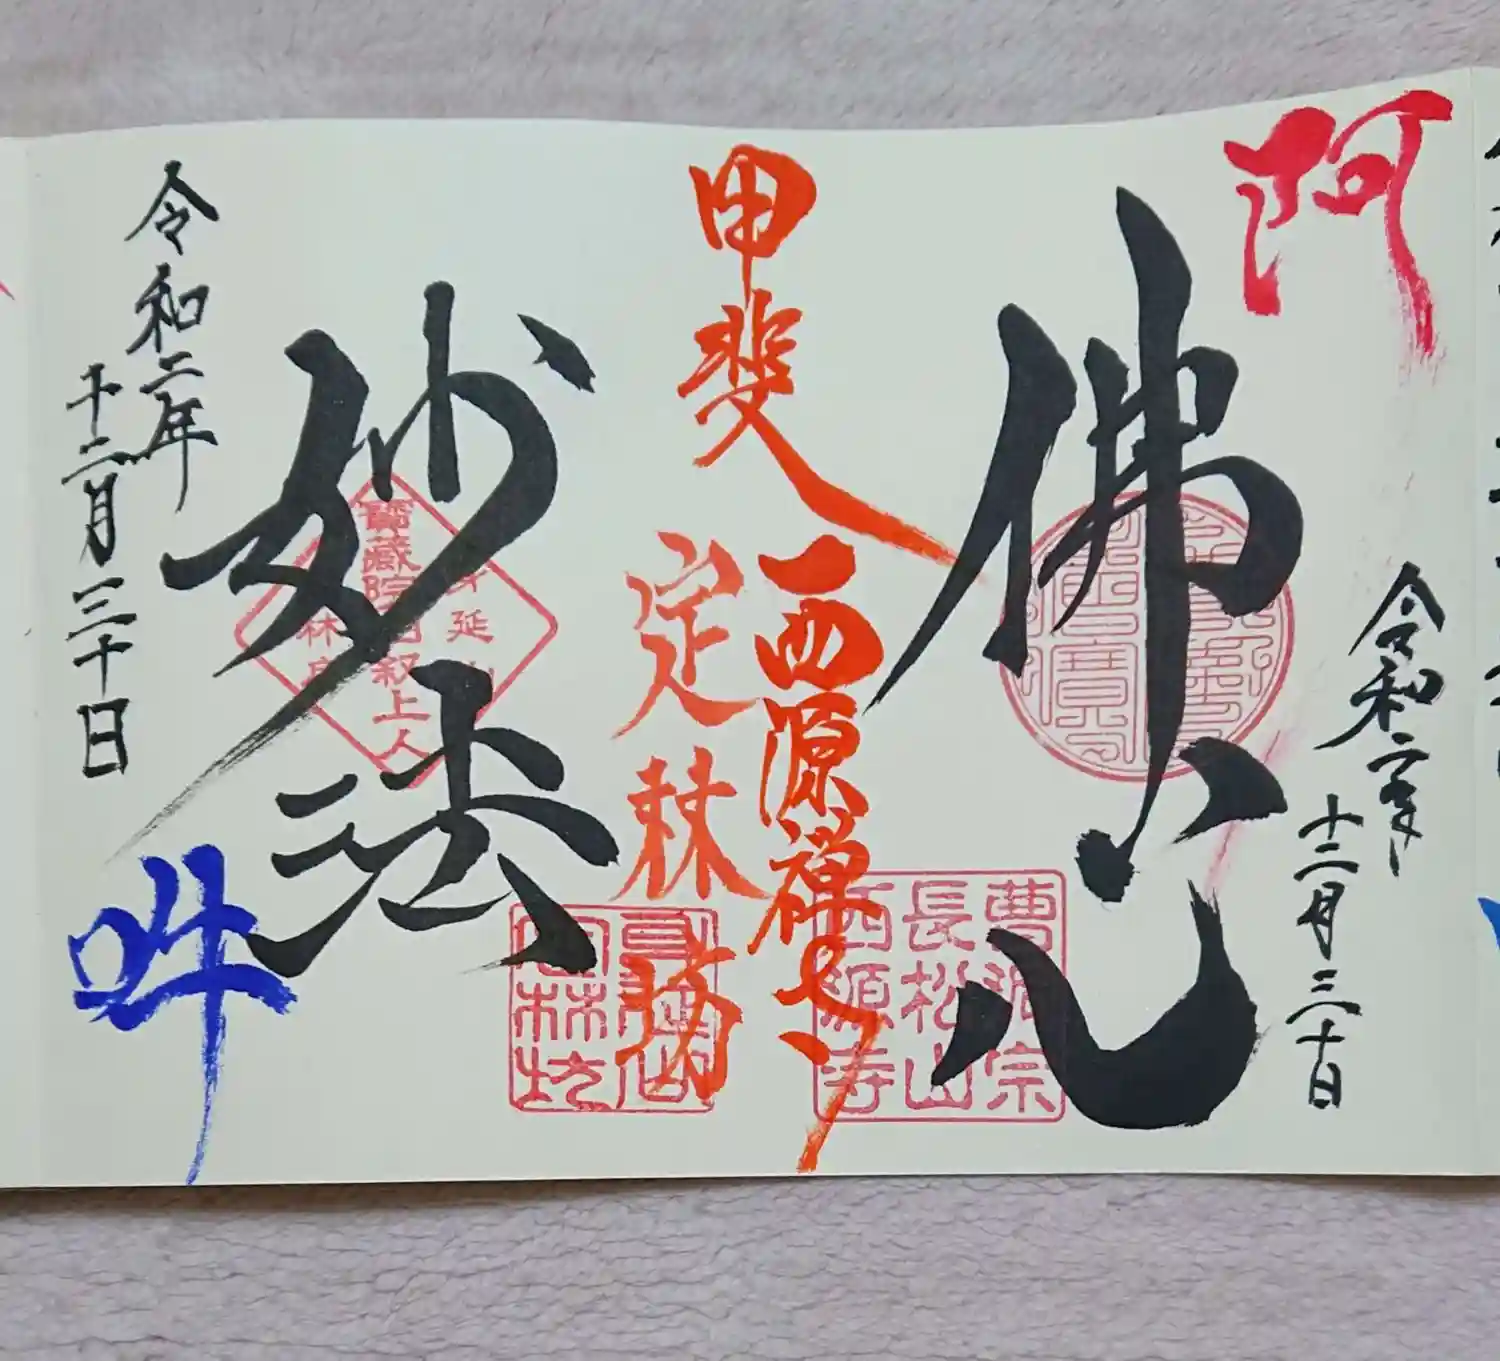 阿
令和二年
十二月三十日
佛心
曹洞宗
長松山
西源寺
甲斐
西源禅寺
定林坊
身延山
定林坊
妙法
令和二年
十二月三十日
吽